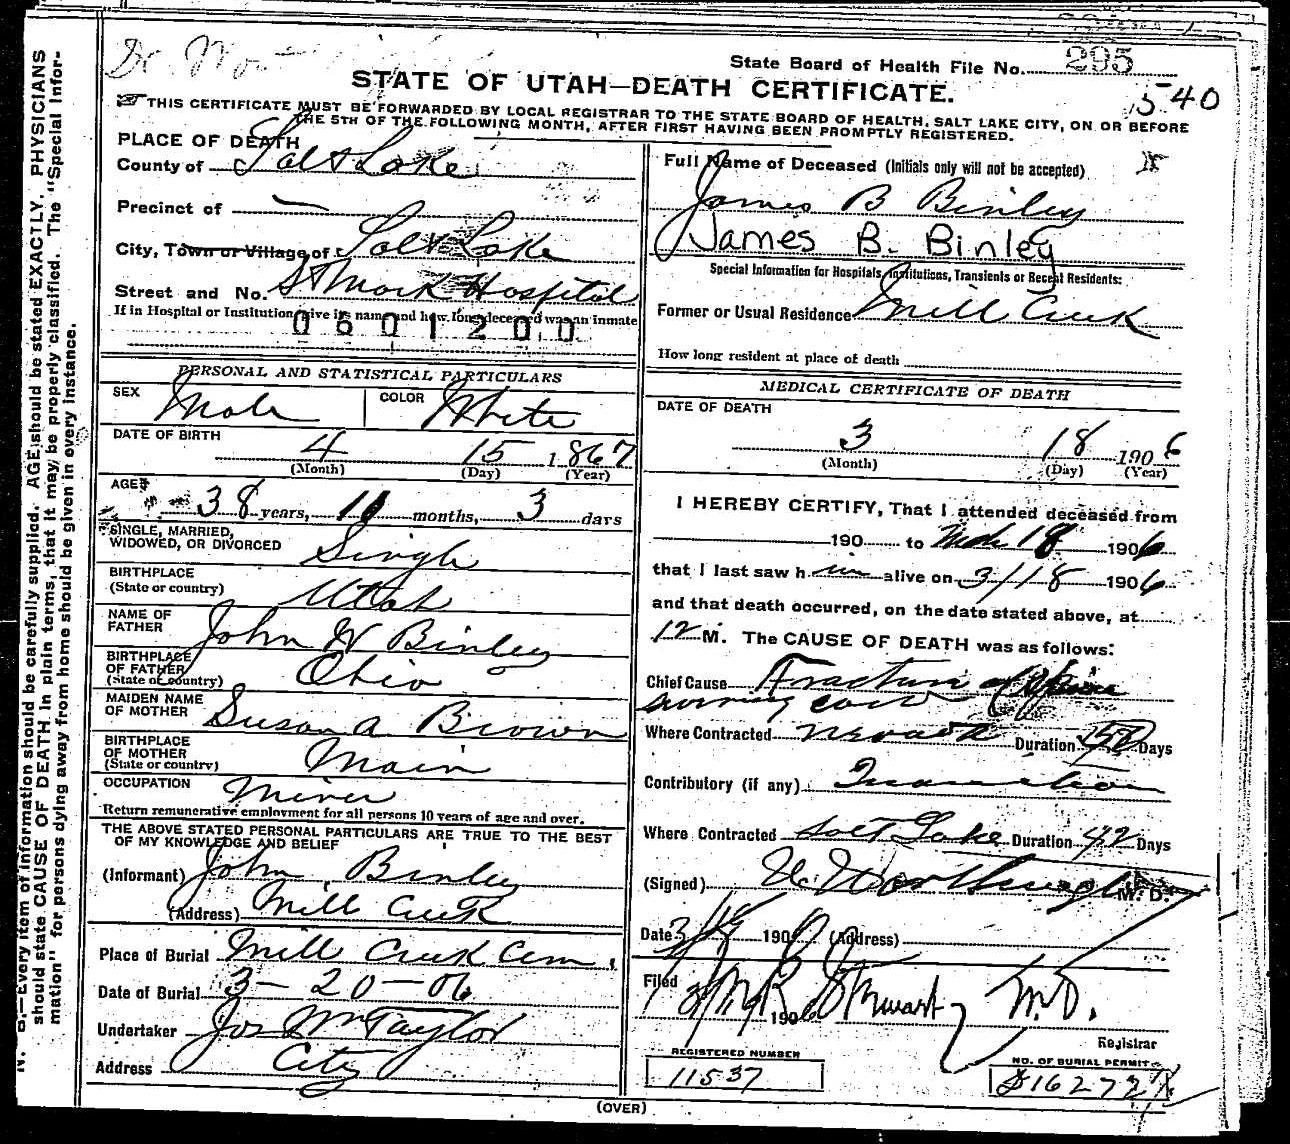 State Board of Health File No. 295
540
STATE OF UTAH—DEATH CERTIFICATE.
THIS CERTIFICATE MUST BE FORWARDED BY LOCAL REGISTRAR TO THE STATE BOARD OF HEALTH, SALT LAKE CITY, ON OR BEFORE
THE 5TH OF THE FOLLOWING MONTH, AFTER FIRST HAVING BEEN PROMPTLY REGISTERED.
PLACE OF DEATH
County of Salt Lake
Precinct of —
City, Town or Village of Salt Lake
Street and No. St Mark Hospital
If in Hospital or Institution, give its name and how long deceased was an inmate
0601200
PERSONAL AND STATISTICAL PARTICULARS
SEX Male COLOR White
DATE OF BIRTH 4 15 1867
(Month) (Day) (Year)
AGE 38 years, 11 months, 3 days
SINGLE, MARRIED,
WIDOWED, OR DIVORCED Single
BIRTHPLACE
(State or country) Utah
NAME OF
FATHER John W Binley
BIRTHPLACE
OF FATHER
(State or country) Ohio
MAIDEN NAME
OF MOTHER Susan A Brown
BIRTHPLACE
OF MOTHER
(State or country) Main
OCCUPATION Miner
Return remunerative employment for all persons 10 years of age and over.
THE ABOVE STATED PERSONAL PARTICULARS ARE TRUE TO THE BEST
OF MY KNOWLEDGE AND BELIEF
(Informant) John Binley
(Address) Mill Creek
Place of Burial Mill Creek Cem.
Date of Burial 3-20-06
Undertaker Jos Wm Taylor
Address City
Full Name of Deceased (Initials only will not be accepted)
James B Binley
James B. Binley
Special Information for Hospitals, Institutions, Transients or Recent Residents:
Former or Usual Residence Mill Creek
How long resident at place of death
MEDICAL CERTIFICATE OF DEATH
DATE OF DEATH
3 18 1906
(Month) (Day) (Year)
I HEREBY CERTIFY, That I attended deceased from
190 to Mch 18 1906
that I last saw him alive on 3/18 1906
and that death occurred, on the date stated above, at
12 M. The CAUSE OF DEATH was as follows:
Chief Cause Fracture of Spine
Where Contracted Nevada Duration 58 Days
Contributory (if any) Inanition
Where Contracted Salt Lake Duration 42 Days
(Signed) Worthington M. D.
Date 3/18 190 (Address)
Filed 190 Stewart M.D.
Registrar
REGISTERED NUMBER
11537
NO. OF BURIAL PERMIT
(OVER)
N. B.—Every item of information should be carefully supplied. AGE should be stated EXACTLY. PHYSICIANS
should state CAUSE OF DEATH in plain terms, that it may be properly classified. The "Special Infor-
mation" for persons dying away from home should be given in every instance.